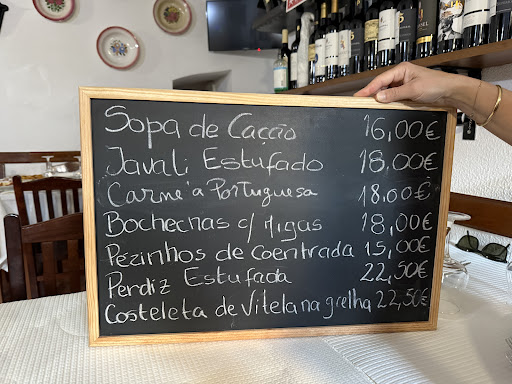 Sopa de Cação 16,00€
Javali Estufado 18,00€
Carne à Portuguesa 18,00€
Bochechas c/ Migas 18,00€
Pezinhos de Coentrada 15,00€
Perdiz Estufada 22,50€
Costeleta de Vitela na grelha 22,50€